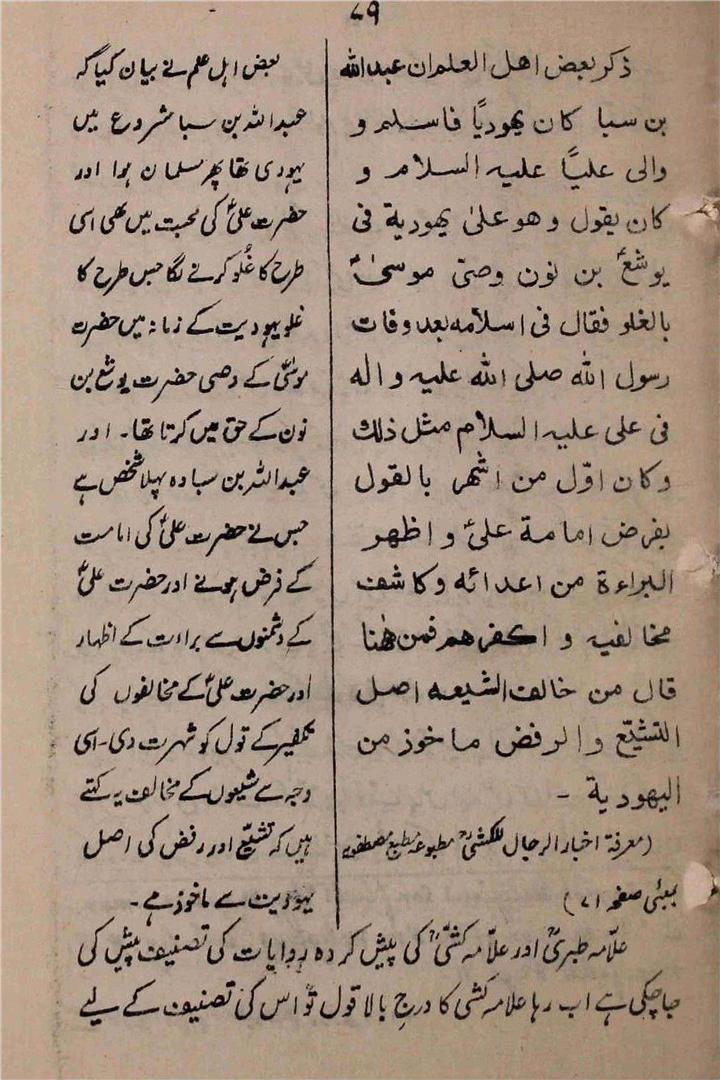 ۷۹
ذکر بعض اهل العلم ان عبد الله
بن سبا کان یهودیًا فاسلم و
والی علیًا علیه السلام و
کان یقول و هو علیٰ یهودیة فی
یوشعؑ بن نون وصیّ موسیٰؑ
بالغلو فقال فی اسلامه بعد وفات
رسول الله صلی الله علیه و اله
فی علی علیه السلام مثل ذلك
وکان اوّل من اشهر بالقول
بفرض امامة علیؑ و اظهر
البراءة من اعدائه و کاشف
مخالفیه و اکفرهم فمن هٰهنا
قال من خالف الشیعه اصل
التشیّع والرفض ماخوذ من
الیهودیة -
(معرفة اخبار الرجال للکشیؒ مطبوعہ مطبع مصطفویہ
بمبئی صفحہ ۷۱)
بعض اہل علم نے بیان کیا کہ
عبد اللہ بن سبا مشروع میں
یہودی تھا پھر مسلمان ہوا اور
حضرت علیؑ کی محبت میں بھی اسی
طرح کا غُلو کرنے لگا جس طرح کا
غلو یہودیت کے زمانہ میں حضرت
موسیٰؑ کے وصی حضرت یوشع بن
نون کے حق میں کرتا تھا۔ اور
عبد اللہ بن سبا وہ پہلا شخص ہے
جس نے حضرت علیؑ کی امامت
کے فرض ہونے اور حضرت علیؑ
کے دشمنوں سے براءت کے اظہار
اور حضرت علیؑ کے مخالفوں کی
تکفیر کے قول کو شہرت دی۔ اسی
وجہ سے شیعوں کے مخالف یہ کہتے
ہیں کہ تشیّع اور رفض کی اصل
یہودیت سے ماخوذ ہے۔
علّامہ طبریؒ اور علّامہ کشیؒ کی پیش کردہ روایات کی تصنیف پیش کی
جا چکی ہے اب رہا علامہ کشی کا درج بالا قول تو اس کی تصنیف کے لیے